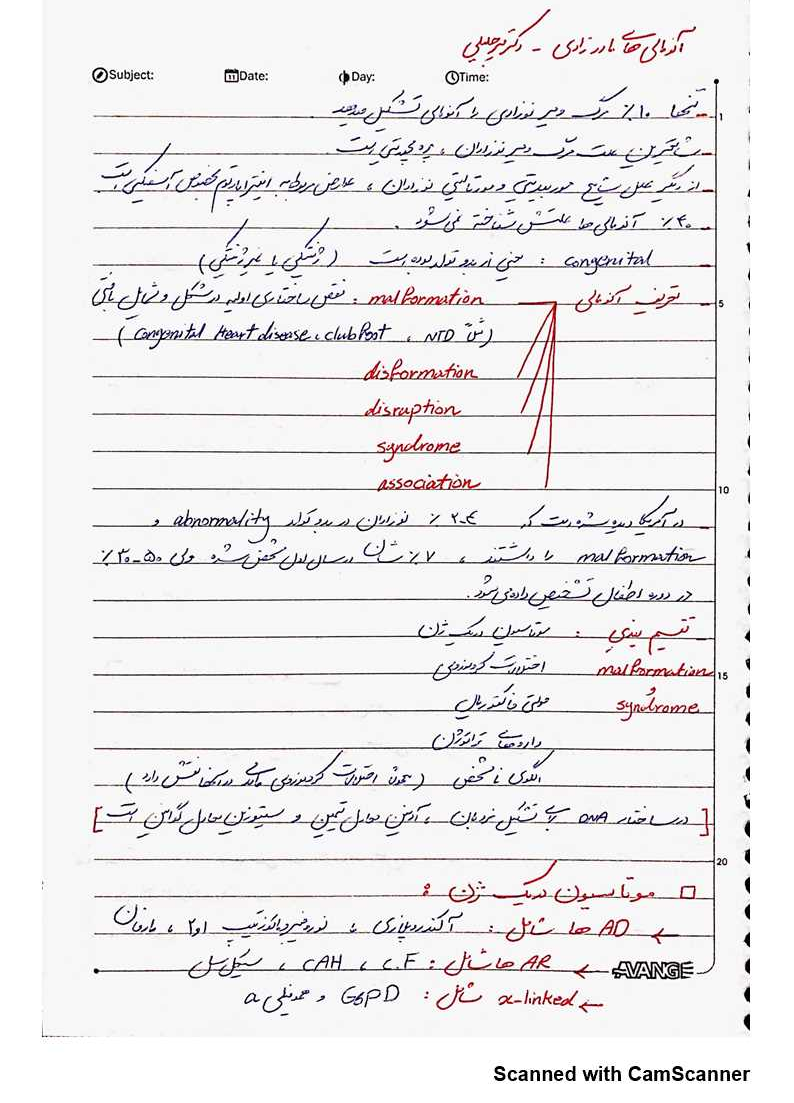 آنومالی های مادرزادی - دکتر میرجلیلی
Subject: Date: Day: Time:
- تنها ۱۰٪ مرگ و میر نوزادی را آنومالی تشکیل میدهد 1
- شایعترین علت مرگ و میر نوزادان ، پره مچوریتی است
- از دیگر علل شایع موربیدیتی و مورتالیتی نوزادان ، عوارض مربوط به اینتراپارتوم بخصوص آسفکسی است
- ۴۰٪ آنومالی ها علتش شناخته نمی‌شود .
congenital : یعنی از بدو تولد بوده است ( ژنتیکی یا غیرژنتیکی )
- تعریف آنومالی malformation : نقص ساختاری اولیه در شکل و شمایل بافتی 5
( مثل NTD ، clubfoot ، Congenital Heart disease )
disformation
disruption
syndrome
association
10
- در آمریکا دیده شده است که ۲-۴ ٪ نوزادان در بدو تولد abnormality و
malformation را داشتند ، ۷٪ شان در سال اول مشخص شده ولی ۵۰-۳۰٪
در دوره اطفال تشخیص داده می شود.
- تقسیم بندی : موتاسیون در یک ژن
malformation اختلالات کروموزومی 15
و
syndrome مولتی فاکتوریال
داروهای تراتوژن
الگوی نامشخص ( چون اختلالات کروموزومی در آنها نقش دارد )
[ در ساختار DNA برای تشکیل نردبان ، آدنین مقابل تیمین و سیتوزین مقابل گوانین است ]
20
□ موتاسیون در یک ژن :
← AD ها شامل : آکندروپلازی ، نوروفیبروماتوز تیپ ۱و۲ ، مارفان
← AR ها شامل : C.F ، CAH ، سیکل سل
AVANGE
← x-linked شامل : G6PD و هموفیلی a
Scanned with CamScanner